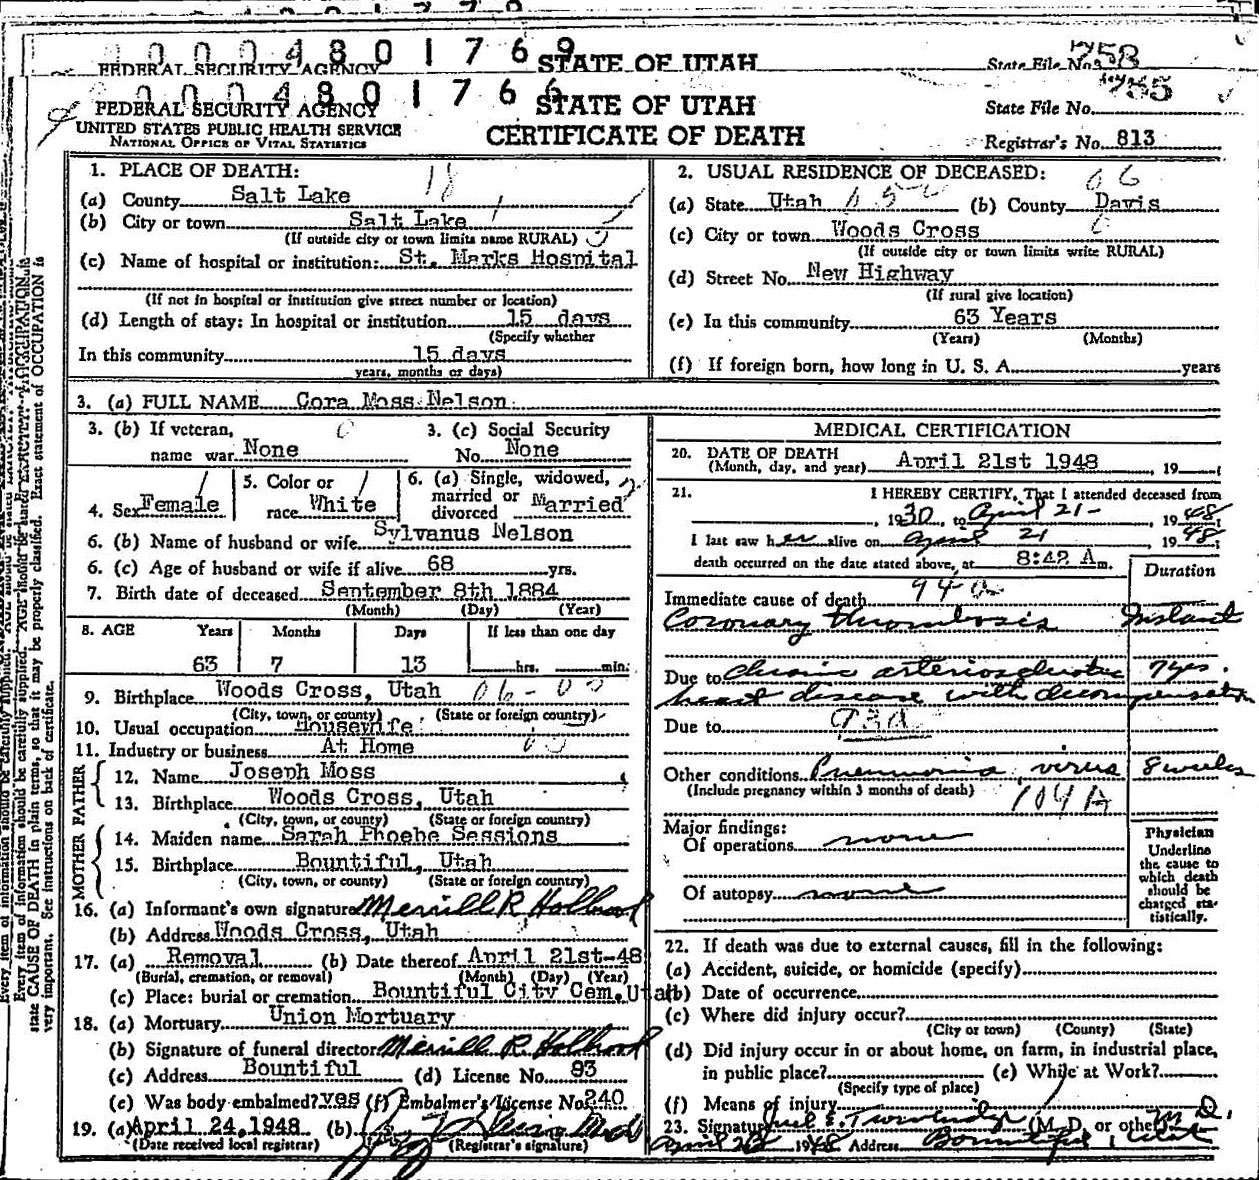 0 0 0 0 4 8 0 1 7 6 9
FEDERAL SECURITY AGENCY STATE OF UTAH State File No.
0 0 0 0 4 8 0 1 7 6 6
FEDERAL SECURITY AGENCY STATE OF UTAH State File No.
UNITED STATES PUBLIC HEALTH SERVICE CERTIFICATE OF DEATH
NATIONAL OFFICE OF VITAL STATISTICS Registrar's No. 813
1. PLACE OF DEATH: 18
(a) County Salt Lake
(b) City or town Salt Lake
(If outside city or town limits name RURAL)
(c) Name of hospital or institution: St. Marks Hospital
(If not in hospital or institution give street number or location)
(d) Length of stay: In hospital or institution 15 days
(Specify whether
In this community 15 days
years, months or days)
2. USUAL RESIDENCE OF DECEASED: 06
(a) State Utah (b) County Davis
(c) City or town Woods Cross
(If outside city or town limits write RURAL)
(d) Street No. New Highway
(If rural give location)
(e) In this community 63 Years
(Years) (Months)
(f) If foreign born, how long in U. S. A. years
3. (a) FULL NAME Cora Moss Nelson
3. (b) If veteran, 3. (c) Social Security
name war None No. None
4. Sex Female 5. Color or race White 6. (a) Single, widowed, married or divorced Married
6. (b) Name of husband or wife Sylvanus Nelson
6. (c) Age of husband or wife if alive 68 yrs.
7. Birth date of deceased September 8th 1884
(Month) (Day) (Year)
8. AGE Years Months Days If less than one day
63 7 13 hrs. min.
9. Birthplace Woods Cross, Utah
(City, town, or county) (State or foreign country)
10. Usual occupation Housewife
11. Industry or business At Home
FATHER
12. Name Joseph Moss
13. Birthplace Woods Cross, Utah
(City, town, or county) (State or foreign country)
MOTHER
14. Maiden name Sarah Phoebe Sessions
15. Birthplace Bountiful, Utah
(City, town, or county) (State or foreign country)
16. (a) Informant's own signature Merrill R Holbrook
(b) Address Woods Cross, Utah
17. (a) Removal (b) Date thereof April 21st-48
(Burial, cremation, or removal) (Month) (Day) (Year)
(c) Place: burial or cremation Bountiful City Cem. Utah
18. (a) Mortuary Union Mortuary
(b) Signature of funeral director Merrill R Holbrook
(c) Address Bountiful (d) License No. 93
(e) Was body embalmed? yes (f) Embalmer's License No. 240
19. (a) April 24, 1948 (b)
(Date received local registrar) (Registrar's signature)
MEDICAL CERTIFICATION
20. DATE OF DEATH
(Month, day, and year) April 21st 1948 , 19
21. I HEREBY CERTIFY, That I attended deceased from
, 1930, to April 21- 1948;
I last saw her alive on April 21 1948;
death occurred on the date stated above, at 8:42 A m.
Duration
Immediate cause of death 94a
Coronary thrombosis Instant
Due to chronic arteriosclerotic 7 yrs.
heart disease with decompensation
Due to 93d
Other conditions Pneumonia, virus 8 weeks
(Include pregnancy within 3 months of death)
Major findings:
Of operations none
Of autopsy none
Physician
Underline
the cause to
which death
should be
charged sta-
tistically.
22. If death was due to external causes, fill in the following:
(a) Accident, suicide, or homicide (specify)
(b) Date of occurrence
(c) Where did injury occur?
(City or town) (County) (State)
(d) Did injury occur in or about home, on farm, in industrial place,
in public place? (e) While at Work?
(Specify type of place)
(f) Means of injury
23. Signature (M. D. or other) M.D.
April 1948 Address Bountiful, Utah
state CAUSE OF DEATH in plain terms, so that it may be properly classified. Exact statement of OCCUPATION is
very important. See instructions on back of certificate.
Every item of information should be carefully supplied.